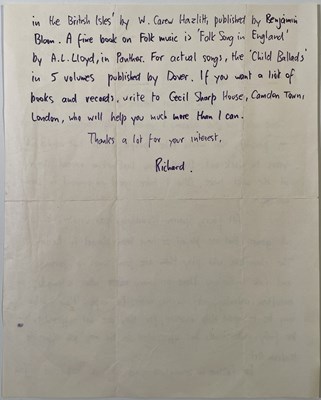 in the British Isles' by W. Carew Hazlitt, published by Benjamin
Bloom. A fine book on Folk music is 'Folk Song in England'
by A.L. Lloyd, in Panther. For actual songs, the 'Child Ballads'
in 5 volumes published by Dover. If you want a list of
books and records, write to Cecil Sharp House, Camden Town,
London, who will help you much more than I can.
Thanks a lot for your interest,
Richard.